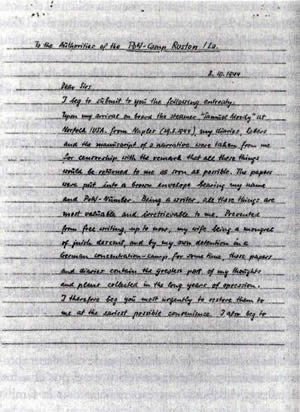 To the Authorities of the PoW-Camp Ruston / La.
2. 10. 1944
Dear Sirs
I beg to submit to you the following entreaty.
Upon my arrival on board the steamer "Samuel Moody" at
Norfolk USA. from Naples (19.8.1944) my diaries, letters
and the manuscript of a narrative were taken from me
for censorship with the remark that all these things
would be returned to me as soon as possible. The papers
were put into a brown envelope bearing my name
and PoW-Number. Being a writer, all those things are
most valuable and irretrievable to me. Prevented
from free writing, up to now, my wife being a mongrel
of jewish descent, and by my own detention in a
German concentration-camp, for some time, those papers
and diaries contain the greatest part of my thoughts
and plans collected in the long years of opression.
I therefore beg you most urgently to restore them to
me at the earliest possible convenience. I also beg to